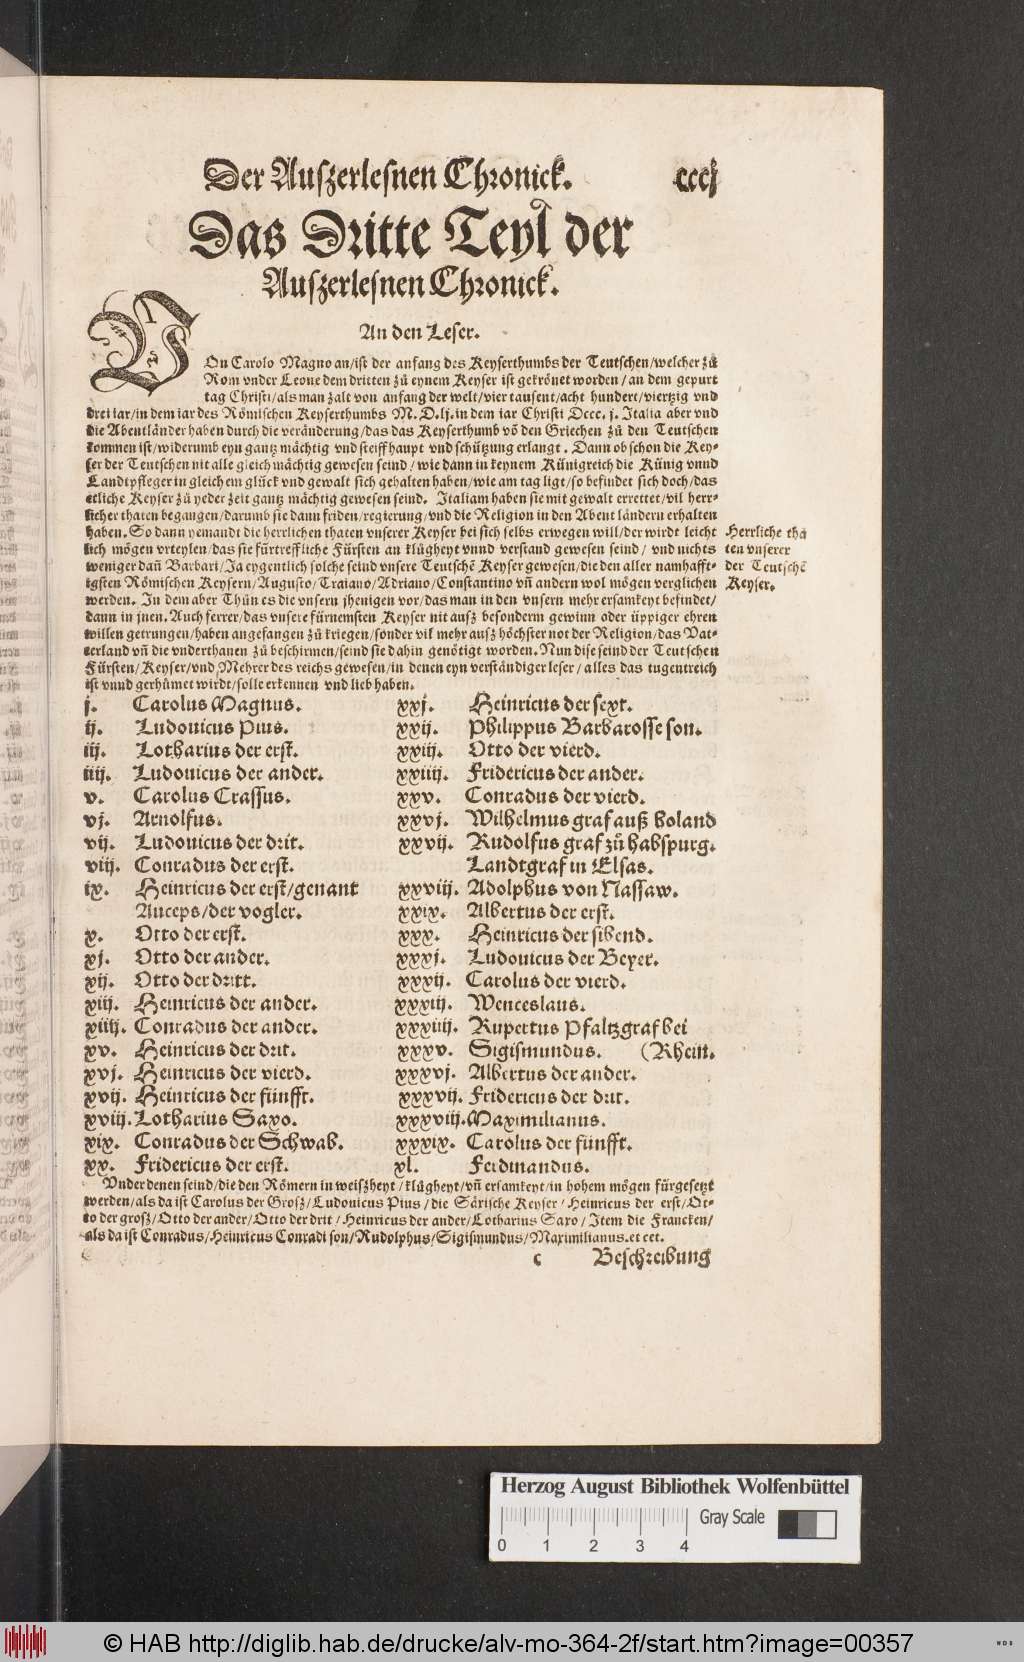 Der Auſzerleſnen Chronick. cccj
Das Dritte Teyl der
Auſzerleſnen Chronick.
An den Leſer.
VOn Carolo Magno an/iſt der anfang des Keyſerthumbs der Teutſchen/welcher zů
Rom vnder Leone dem dritten zů eynem Keyſer iſt gekrönet worden/an dem gepurt
tag Chriſti/als man zalt von anfang der welt/vier tauſent/acht hundert/viertzig vnd
drei iar/in dem iar des Römiſchen Keyſerthumbs M.D.lj.in dem iar Chriſti Dccc.j. Italia aber vnd
die Abentländer haben durch die veränderung/das das Keyſerthumb võ den Griechen zů den Teutſchen
kommen iſt/widerumb eyn gantz mächtig vnd ſteiff haupt vnd ſchützung erlangt. Dann ob ſchon die Key-
ſer der Teutſchen nit alle gleich mächtig geweſen ſeind/wie dann in keynem Künigreich die Künig vnnd
Landtpfleger in gleichem glück vnd gewalt ſich gehalten haben/wie am tag ligt/ſo befindet ſich doch/das
etliche Keyſer zů yeder zeit gantz mächtig geweſen ſeind. Italiam haben ſie mit gewalt errettet/vil herr-
licher thaten begangen/darumb ſie dann friden/regierung/vnd die Religion in den Abent ländern erhalten
haben. So dann yemandt die herrlichen thaten vnſerer Keyſer bei ſich ſelbs erwegen will/der wirdt leicht
lich mögen vrteylen/das ſie fürtreffliche Fürſten an klůgheyt vnnd verſtand geweſen ſeind/vnd nichts
weniger dañ Barbari/Ja eygentlich ſolche ſeind vnſere Teutſchẽ Keyſer geweſen/die den aller namhafft-
igſten Römiſchen Keyſern/Auguſto/Traiano/Adriano/Conſtantino vñ andern wol mögen verglichen
werden. In dem aber Thůn es die vnſern jhenigen vor/das man in den vnſern mehr erſamkeyt befindet/
dann in jnen. Auch ferrer/das vnſere fürnemſten Keyſer nit auſz beſonderm gewinn oder üppiger ehren
willen getrungen/haben angefangen zů kriegen/ſonder vil mehr auſz höchſter not der Religion/das Vat-
terland vñ die vnderthanen zů beſchirmen/ſeind ſie dahin genötigt worden. Nun diſe ſeind der Teutſchen
Fürſten/Keyſer/vnd Mehrer des reichs geweſen/in denen eyn verſtändiger leſer/alles das tugentreich
iſt vnnd gerhůmet wirdt/ſolle erkennen vnd lieb haben.
Herrliche thå
ten vnſerer
der Teutſchẽ
Keyſer.
j. Carolus Magnus.
ij. Ludouicus Pius.
iij. Lotharius der erſt.
iiij. Ludouicus der ander.
v. Carolus Craſſus.
vj. Arnolfus.
vij. Ludouicus der drit.
viij. Conradus der erſt.
ix. Heinricus der erſt/genant
Auceps/der vogler.
x. Otto der erſt.
xj. Otto der ander.
xij. Otto der dritt.
xiij. Heinricus der ander.
xiiij. Conradus der ander.
xv. Heinricus der drit.
xvj. Heinricus der vierd.
xvij. Heinricus der fünfft.
xviij. Lotharius Saxo.
xix. Conradus der Schwab.
xx. Fridericus der erſt.
xxj. Heinricus der ſext.
xxij. Philippus Barbaroſſe ſon.
xxiij. Otto der vierd.
xxiiij. Fridericus der ander.
xxv. Conradus der vierd.
xxvj. Wilhelmus graf auß holand
xxvij. Rudolfus graf zů habſpurg.
Landtgraf in Elſas.
xxviij. Adolphus von Naſſaw.
xxix. Albertus der erſt.
xxx. Heinricus der ſibend.
xxxj. Ludouicus der Beyer.
xxxij. Carolus der vierd.
xxxiij. Wenceslaus.
xxxiiij. Rupertus Pfaltzgraf bei
xxxv. Sigiſmundus. (Rhein.
xxxvj. Albertus der ander.
xxxvij. Fridericus der drit.
xxxviij. Maximilianus.
xxxix. Carolus der fünfft.
xl. Ferdinandus.
Vnder denen ſeind/die den Römern in weiſzheyt/klůgheyt/vñ erſamkeyt/in hohem mögen fürgeſetzt
werden/als da iſt Carolus der Groſz/Ludouicus Pius/die Såriſche Keyſer/Heinricus der erſt/Ot-
to der groſz/Otto der ander/Otto der drit/Heinricus der ander/Lotharius Saxo/Item die Francken/
als da iſt Conradus/Heinricus Conradi ſon/Rudolphus/Sigiſmundus/Maximilianus.et cet.
c Beſchreibung
Herzog August Bibliothek Wolfenbüttel
Gray Scale
0 1 2 3 4
© HAB http://diglib.hab.de/drucke/alv-mo-364-2f/start.htm?image=00357